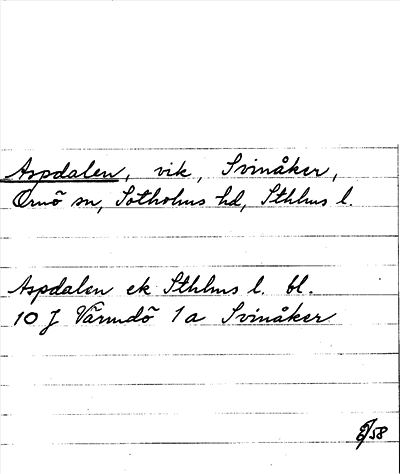 Aspdalen, vik, Svinåker,
Ornö sn, Sotholms hd, Sthlms l.
Aspdalen ek Sthlms l. bl.
10 J Värmdö 1a Svinåker
/58